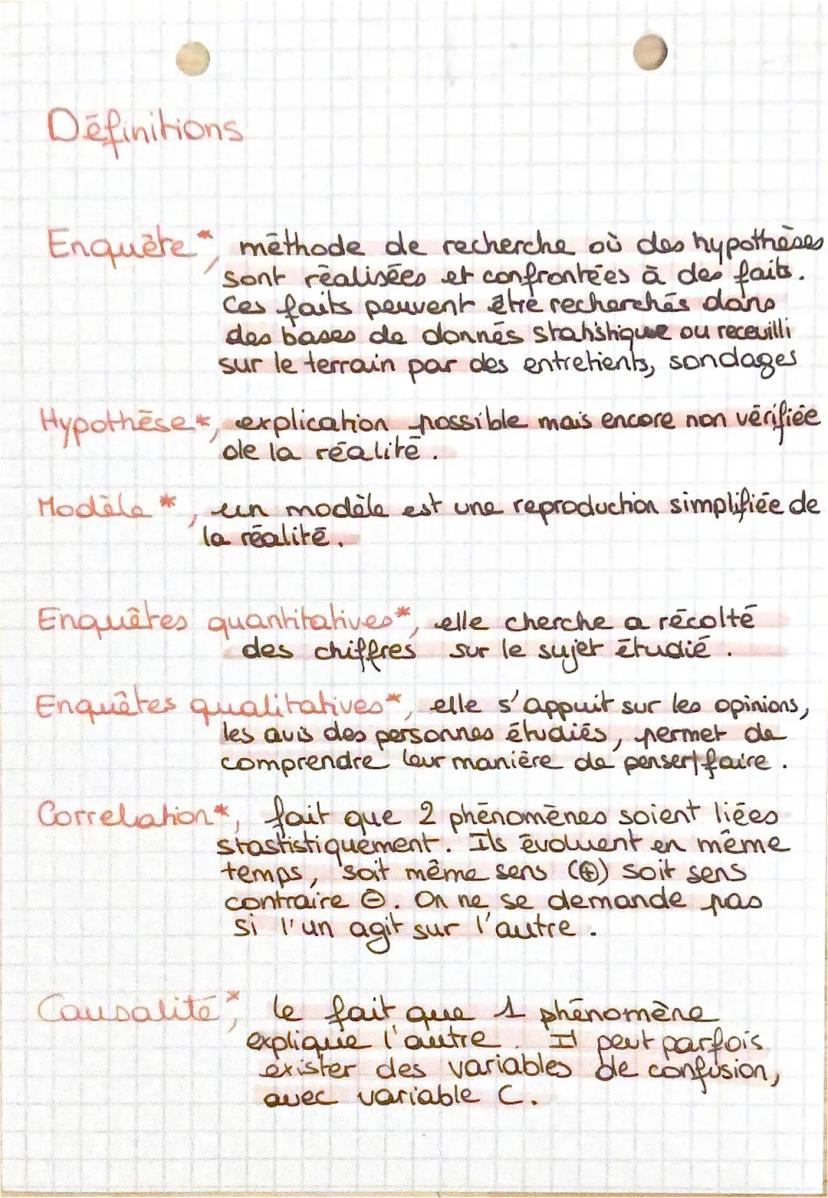 Définitions
Enquête*, méthode de recherche où des hypothèses
sont réalisées et confrontées à des faits.
Ces faits peuvent être recherchés dans
des bases de donnés statistique ou receuilli
sur le terrain par des entretients, sondages
Hypothèse*, explication possible mais encore non vérifiée
de la réalité.
Modèle*, un modèle est une reproduction simplifiée de
la réalité.
Enquêtes quantitatives*, elle cherche a récolté
des chiffres sur le sujet étudié.
Enquêtes qualitatives*, elle s'appuit sur les opinions,
les avis des personnes étudiés, permet de
comprendre leur manière de penser/faire.
Correlation*, fait que 2 phénomènes soient liées
stastistiquement. Ils évoluent en même
temps, soit même sens (⊕) soit sens
contraire ⊖. On ne se demande pas
si l'un agit sur l'autre.
Causalité*, le fait que 1 phénomène
explique l'autre. Il peut parfois
exister des variables de confusion,
avec variable C.